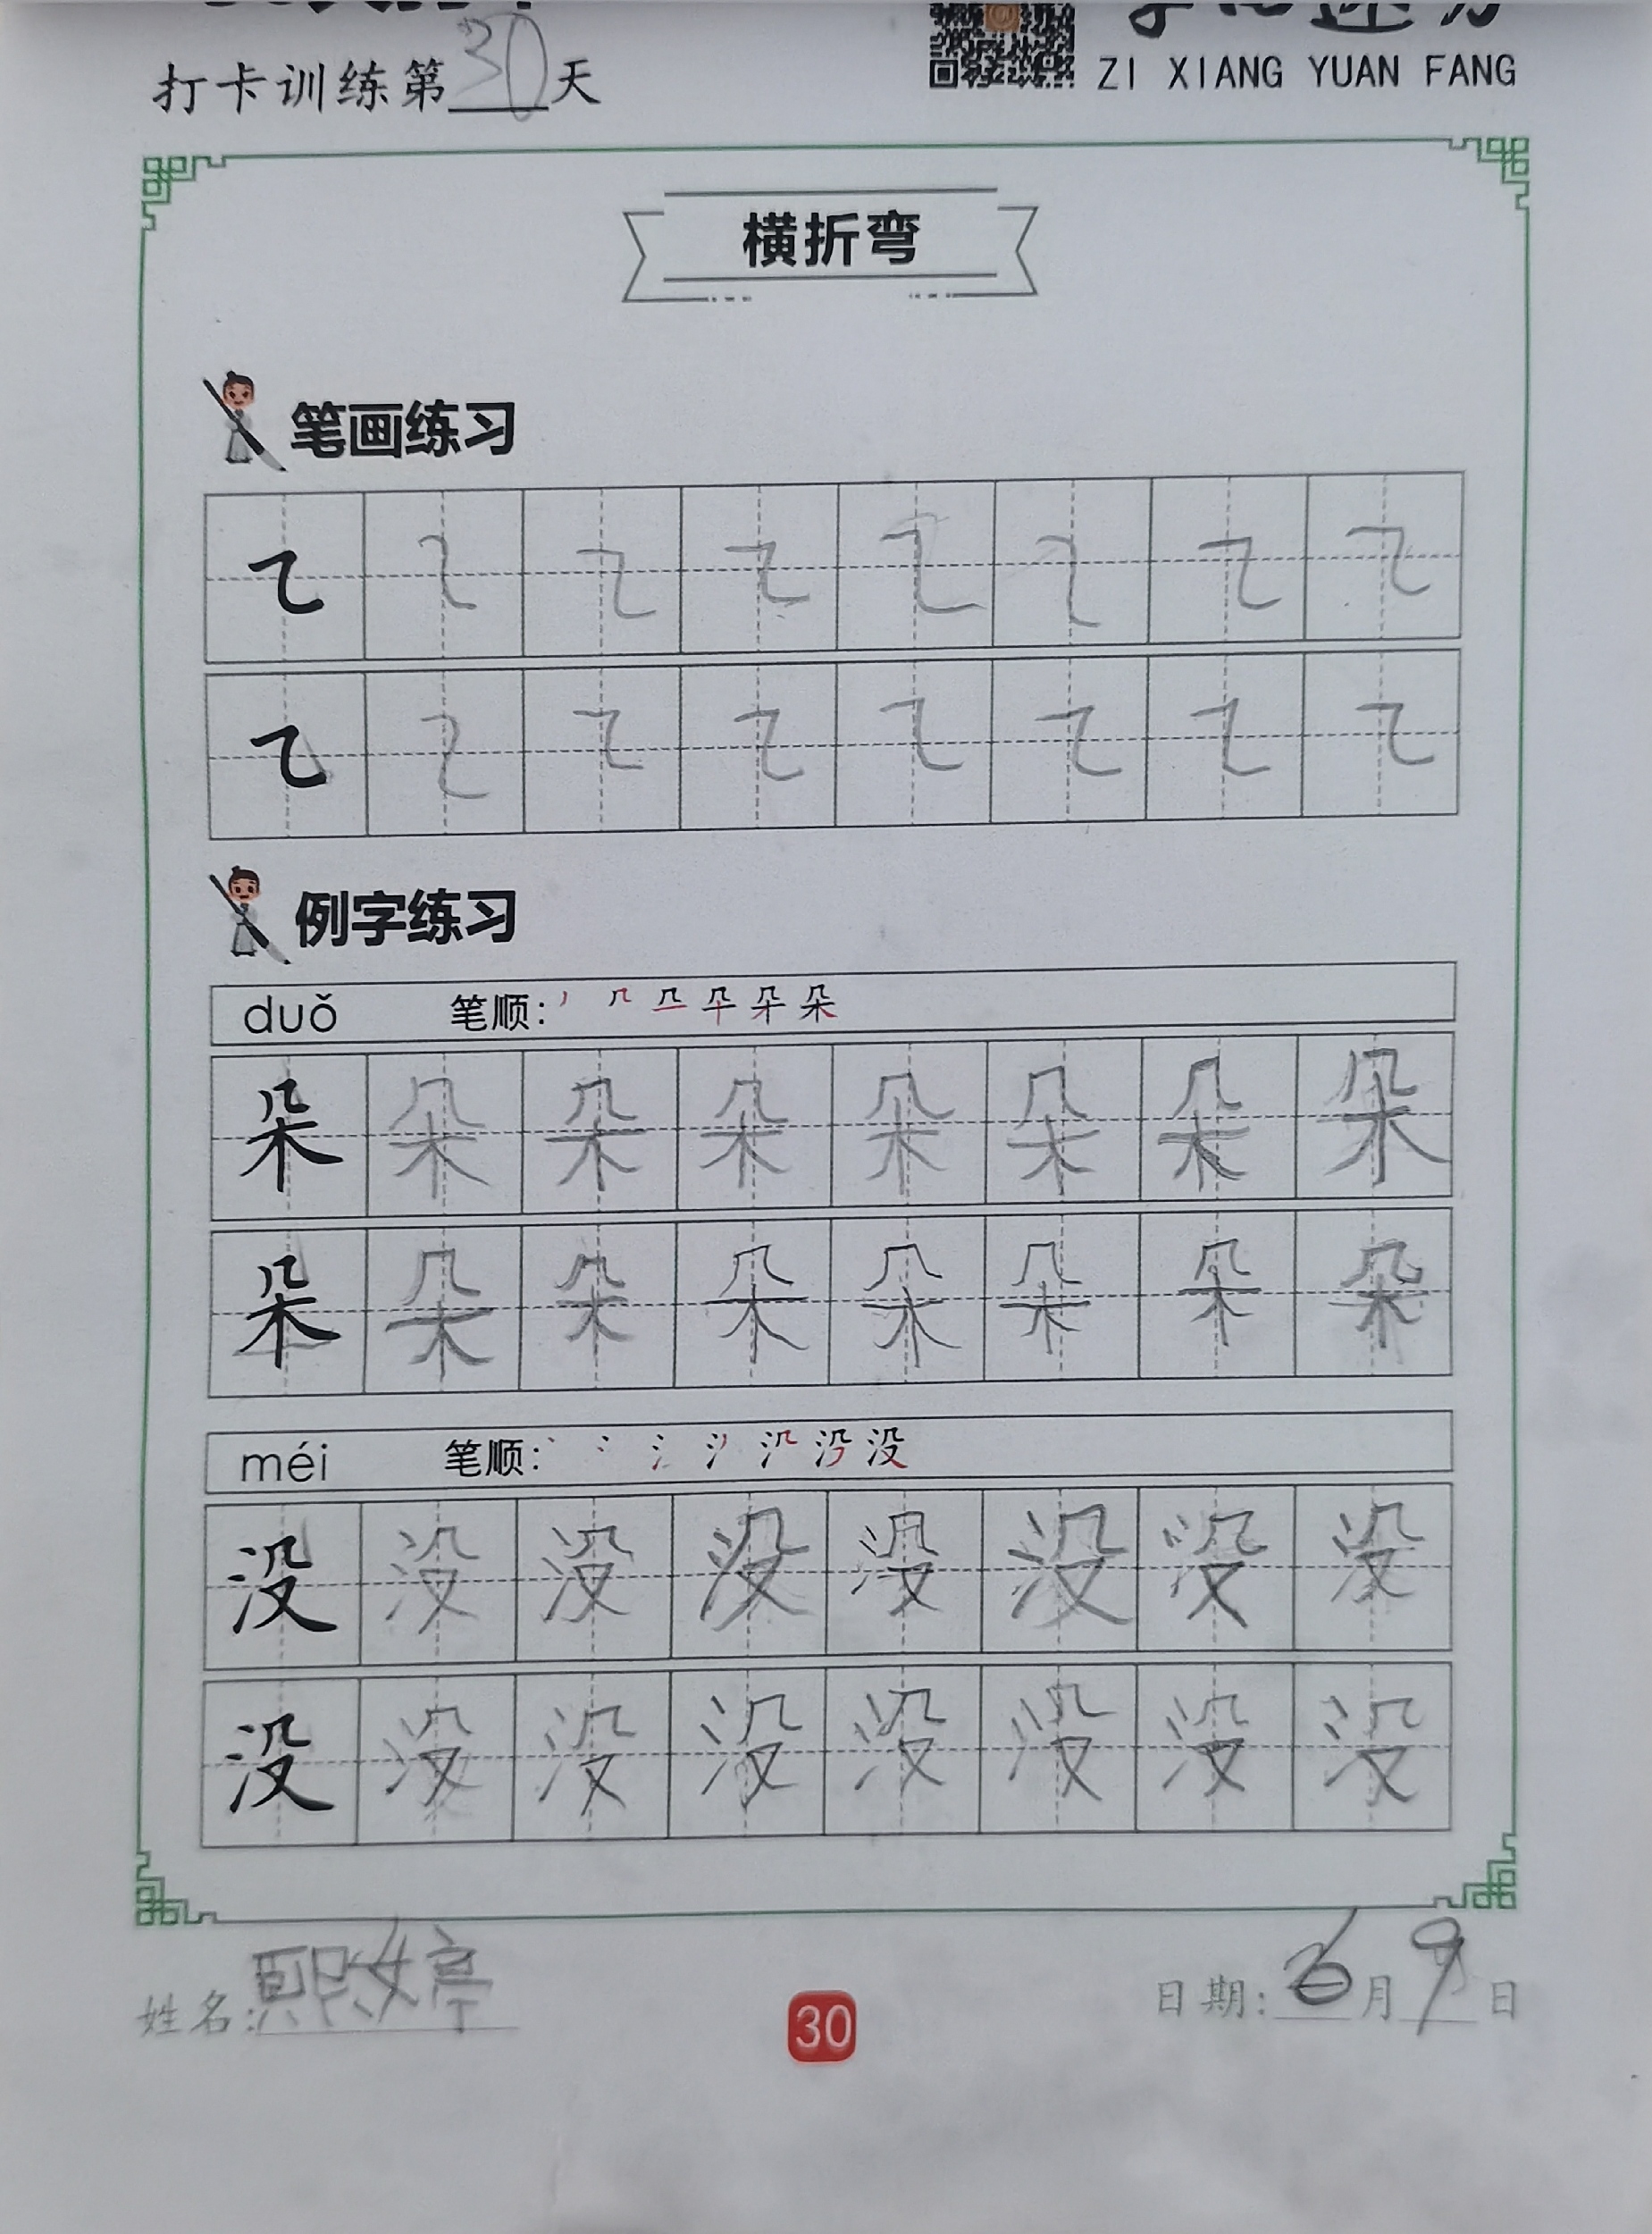 打卡训练第30天
ZI XIANG YUAN FANG
横折弯
笔画练习
例字练习
duǒ 笔顺: 丿 几 朵
朵 朵 朵 朵 朵 朵 朵 朵
朵 朵 朵 朵 朵 朵 朵 朵
méi 笔顺: 没
没 没 没 没 没 没 没 没
没 没 没 没 没 没 没 没
姓名:
30
日期: 6月9日